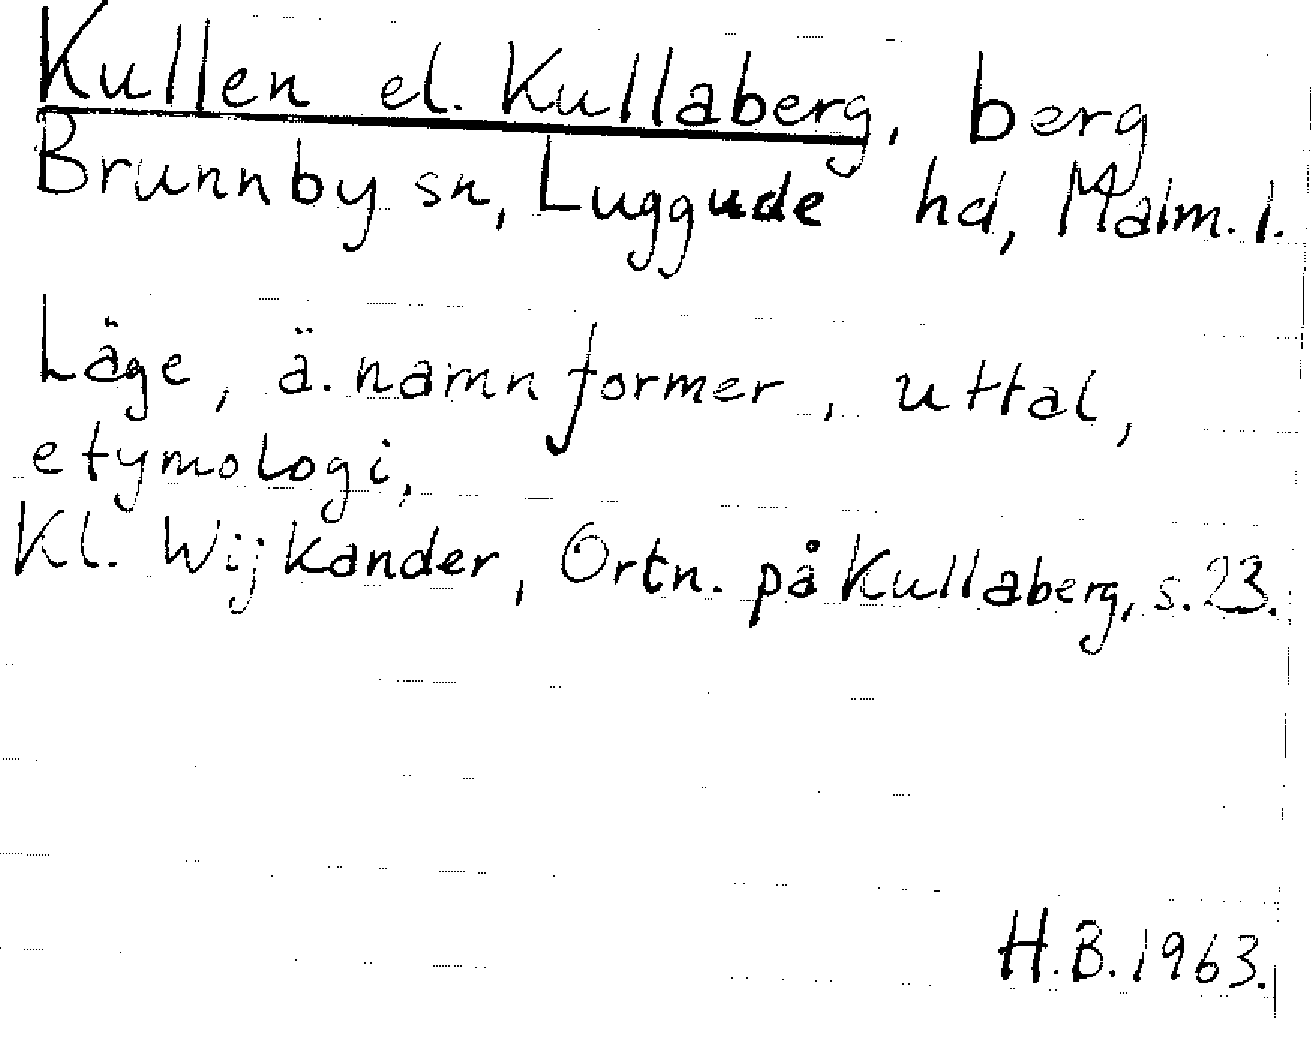 Kullen el. Kullaberg, berg
Brunnby sn, Luggude hd, Malm. l.
Läge, ä. namnformer, uttal,
etymologi,
Kl. Wijkander, Ortn. på Kullaberg, s. 23.
H.B. 1963.